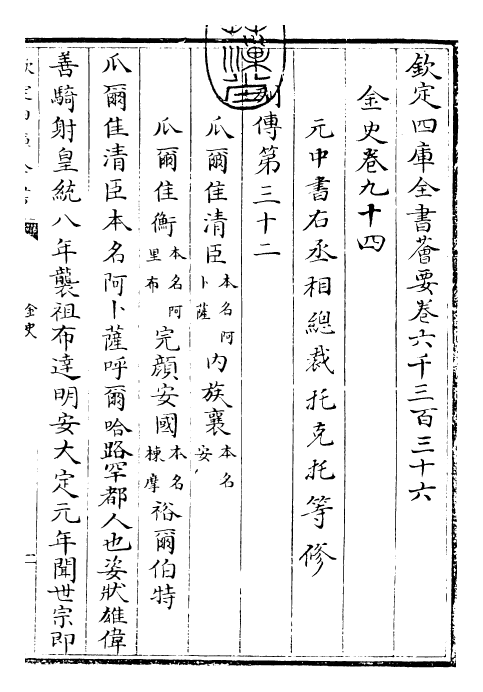 欽定四庫全書薈要卷六千三百三十六
金史卷九十四
元中書右丞相總裁托克托等修
列傳第三十二
瓜爾佳清臣本名阿卜薩 內族襄本名安
瓜爾佳衡本名阿里布 完顔安國本名棟摩 裕爾伯特
瓜爾佳清臣本名阿卜薩呼爾哈路罕都人也姿狀雄偉
善騎射皇統八年襲祖布達明安大定元年聞世宗即
金史